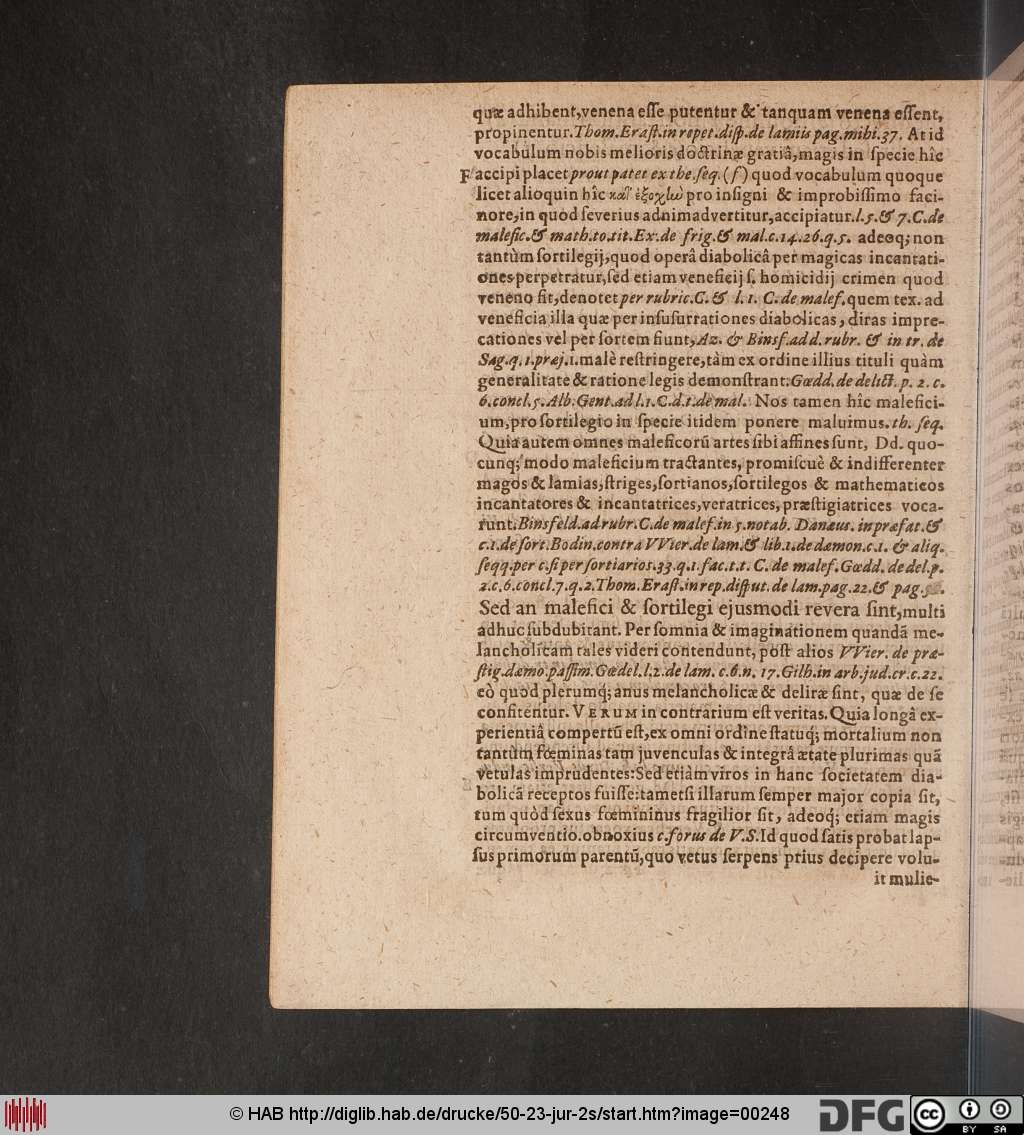 quæ adhibent, venena eſſe putentur & tanquam venena eſſent,
propinentur. Thom. Eraſt. in repet. diſp. de lamiis pag. mihi. 37. At id
vocabulum nobis melioris doctrinæ gratiâ, magis in ſpecie hîc
F accipi placet prout patet ex the. ſeq. (f) quod vocabulum quoque
licet alioquin hîc κατ' ἐξοχὴν pro inſigni & improbiſſimo faci-
nore, in quod ſeverius adnimadvertitur, accipiatur. l. 5. & 7. C. de
malefic. & math. to. tit. Ex. de frig. & mal. c. 14. 26. q. 5. adeoq; non
tantùm ſortilegij, quod operâ diabolicâ per magicas incantati-
ones perpetratur, ſed etiam veneficij ſ. homicidij crimen quod
veneno fit, denotet per rubric. C. & l. 1. C. de malef. quem tex. ad
veneficia illa quæ per inſuſurrationes diabolicas, diras impre-
cationes vel per ſortem fiunt, Az. & Binsf. add. rubr. & in tr. de
Sag. q. 1. præj. 1. malè reſtringere, tàm ex ordine illius tituli quàm
generalitate & ratione legis demonſtrant. Gœdd. de delict. p. 2. c.
6. concl. 5. Alb. Gent. ad l. 1. C. d. t. de mal. Nos tamen hîc malefici-
um, pro ſortilegio in ſpecie itidem ponere maluimus. th. ſeq.
Quia autem omnes maleficorū artes ſibi affines ſunt, Dd. quo-
cunq; modo maleficium tractantes, promiſcuè & indifferenter
magos & lamias, ſtriges, ſortianos, ſortilegos & mathematicos
incantatores & incantatrices, veratrices, præſtigiatrices voca-
runt. Binsfeld. ad rubr. C. de malef. in 5. notab. Danæus. in præfat. &
c. 1. de ſort. Bodin. contra VVier. de lam. & lib. 1. de dæmon. c. 1. & aliq.
ſeqq. per c. ſi per ſortiarios. 33. q. 1. fac. t. t. C. de malef. Gœdd. de del. p.
2. c. 6. concl. 7. q. 2. Thom. Eraſt. in rep. diſput. de lam. pag. 22. & pag.
Sed an malefici & ſortilegi ejusmodi revera ſint, multi
adhuc ſubdubitant. Per ſomnia & imaginationem quandā me-
lancholicam tales videri contendunt, pòſt alios VVier. de præ-
ſtig. dæmo. paſſim. Gœdel. l. 2. de lam. c. 6. n. 17. Gilh. in arb. jud. cr. c. 22.
eò quod plerumq; anus melancholicæ & deliræ ſint, quæ de ſe
confitentur. VERUM in contrarium eſt veritas. Quia longâ ex-
perientiâ compertū eſt, ex omni ordine ſtatuq; mortalium non
tantùm fœminas tam juvenculas & integrâ ætate plurimas quā
vetulas imprudentes: Sed etiàm viros in hanc ſocietatem dia-
bolicā receptos fuiſſe: tametſi illarum ſemper major copia ſit,
tum quòd ſexus fœmininus fragilior ſit, adeoq; etiam magis
circumventio. obnoxius c. forus de V. S. Id quod ſatis probat lap-
ſus primorum parentū, quo vetus ſerpens prius decipere volu-
it mulie-
© HAB http://diglib.hab.de/drucke/50-23-jur-2s/start.htm?image=00248
DFG
cc BY SA